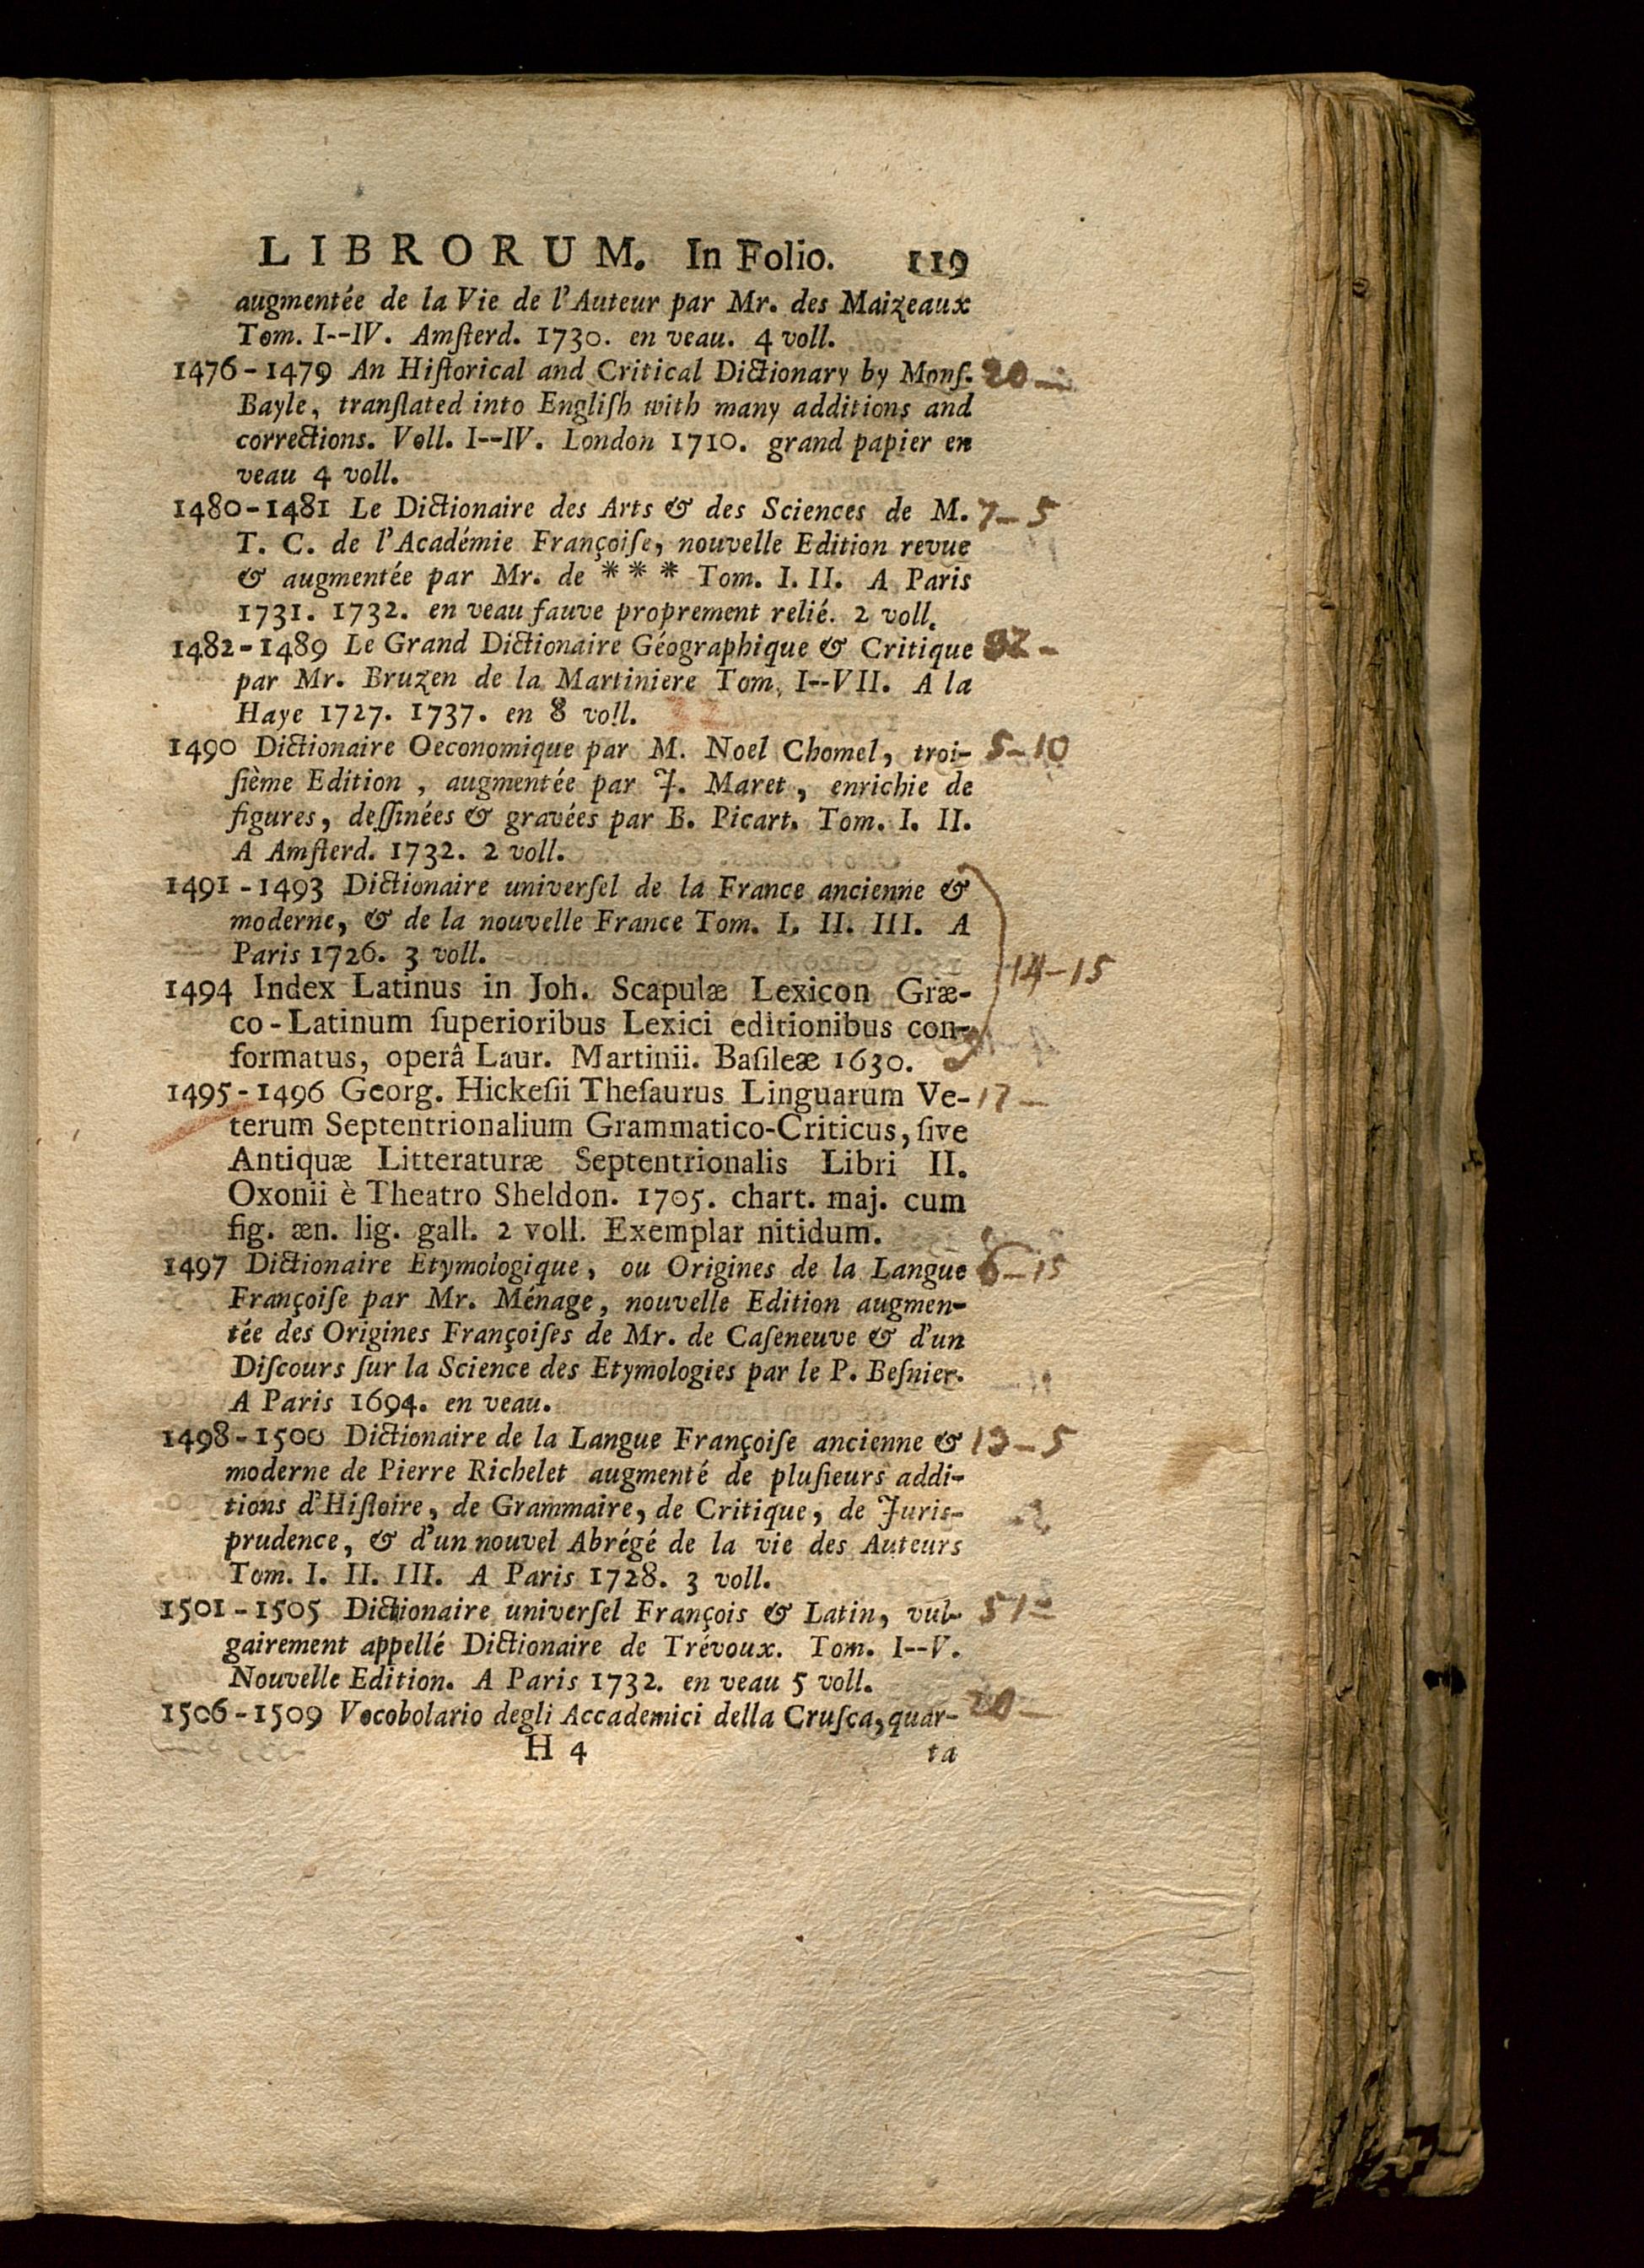 LIBRORUM. In Folio. 119
augmentée de la Vie de l'Auteur par Mr. des Maizeaux
Tom. I--IV. Amſterd. 1730. en veau. 4 voll.
1476-1479 An Hiſtorical and Critical Dictionary by Monſ. 20 —
Bayle, tranſlated into Engliſh with many additions and
corrections. Voll. I--IV. London 1710. grand papier en
veau 4 voll.
1480-1481 Le Dictionaire des Arts & des Sciences de M. 7-5
T. C. de l'Académie Françoiſe, nouvelle Edition revue
& augmentée par Mr. de *** Tom. I. II. A Paris
1731. 1732. en veau fauve proprement relié. 2 voll.
1482-1489 Le Grand Dictionaire Géographique & Critique
par Mr. Bruzen de la Martiniere Tom, I--VII. A la
Haye 1727. 1737. en 8 voll.
1490 Dictionaire Oeconomique par M. Noel Chomel, troi- 5-10
ſième Edition, augmentée par J. Maret, enrichie de
figures, deſſinées & gravées par B. Picart. Tom. I. II.
A Amſterd. 1732. 2 voll.
1491-1493 Dictionaire univerſel de la France ancienne &
moderne, & de la nouvelle France Tom. I. II. III. A
Paris 1726. 3 voll.
14-15
1494 Index Latinus in Joh. Scapulæ Lexicon Græ-
co-Latinum ſuperioribus Lexici editionibus con-
formatus, operâ Laur. Martinii. Baſileæ 1630.
1495-1496 Georg. Hickeſii Theſaurus Linguarum Ve- 17 —
terum Septentrionalium Grammatico-Criticus, ſive
Antiquæ Litteraturæ Septentrionalis Libri II.
Oxonii è Theatro Sheldon. 1705. chart. maj. cum
fig. æn. lig. gall. 2 voll. Exemplar nitidum.
1497 Dictionaire Etymologique, ou Origines de la Langue 6-15
Françoiſe par Mr. Ménage, nouvelle Edition augmen-
tée des Origines Françoiſes de Mr. de Caſeneuve & d'un
Diſcours ſur la Science des Etymologies par le P. Beſnier.
A Paris 1694. en veau.
1498-1500 Dictionaire de la Langue Françoiſe ancienne & 13-5
moderne de Pierre Richelet augmenté de pluſieurs addi-
tions d'Hiſtoire, de Grammaire, de Critique, de Juris-
prudence, & d'un nouvel Abrégé de la vie des Auteurs
Tom. I. II. III. A Paris 1728. 3 voll.
1501-1505 Dictionaire univerſel François & Latin, vul- 51-
gairement appellé Dictionaire de Trévoux. Tom. I--V.
Nouvelle Edition. A Paris 1732. en veau 5 voll.
1506-1509 Vocobolario degli Accademici della Cruſca, quar- 20 —
H 4 ta